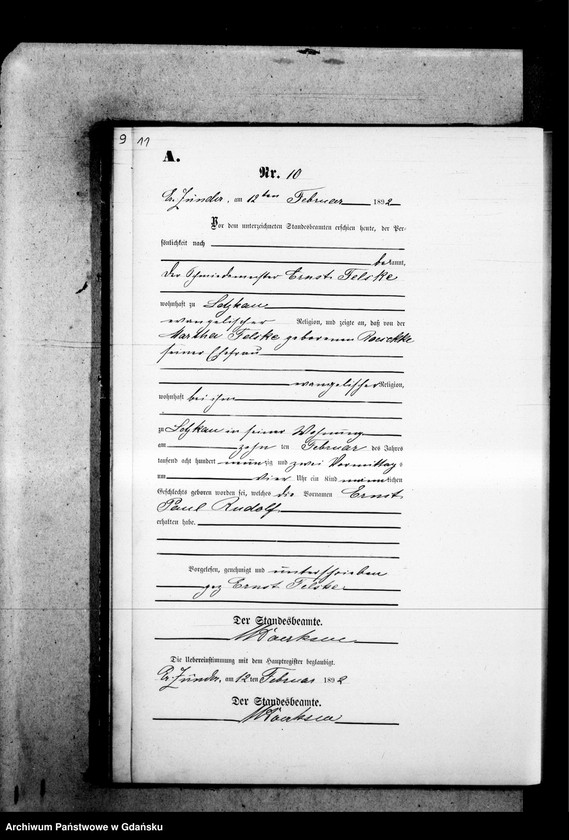 9 11
A.
Nr. 10
Gr. Zünder, am 12ten Februar 1892
Vor dem unterzeichneten Standesbeamten erschien heute, der Per-
sönlichkeit nach
bekannt,
der Schmiedemeister Ernst Felske
wohnhaft zu Letzkau
evangelischer Religion, und zeigte an, daß von der
Martha Felske geborenen
seiner Ehefrau
evangelischer Religion,
wohnhaft bei ihm
zu Letzkau in seiner Wohnung
am zehn ten Februar des Jahres
tausend acht hundert neunzig und zwei Vormittags
um vier Uhr ein Kind männlichen
Geschlechts geboren worden sei, welches die Vornamen Ernst
Paul Rudolf
erhalten habe.
Vorgelesen, genehmigt und unterschrieben
gez Ernst Felske
Der Standesbeamte.
Die Uebereinstimmung mit dem Hauptregister beglaubigt.
Gr. Zünder, am 12 ten Februar 1892
Der Standesbeamte.
Archiwum Państwowe w Gdańsku